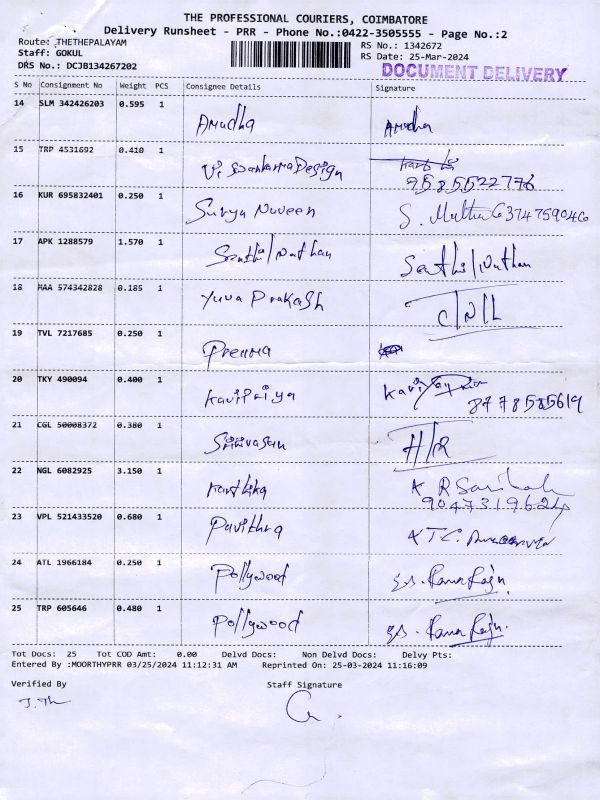 THE PROFESSIONAL COURIERS, COIMBATORE
Delivery Runsheet - PRR - Phone No.:0422-3505555 - Page No.:2
Route: THETHEPALAYAM RS No.: 1342672
Staff: GOKUL RS Date: 25-Mar-2024
DRS No.: DCJB134267202 DOCUMENT DELIVERY
S No Consignment No Weight PCS Consignee Details Signature
14 SLM 342426203 0.595 1
Amudha Amudha
15 TRP 4531692 0.410 1
Viswakarma Design
9585522776
16 KUR 695832401 0.250 1
Surya Naveen S. Muthu 6374759046
17 APK 1288579 1.570 1
Senthil Nathan Senthil Nathan
18 MAA 574342828 0.185 1
Yuva Prakash C/N/L
19 TVL 7217685 0.250 1
Prema
20 TKY 490094 0.400 1
Kavipriya Kavipriya
8778585619
21 CGL 50008372 0.380 1
Srinivasan H/R
22 NGL 6082925 3.150 1
Karthika K R
9047319624
23 VPL 521433520 0.680 1
Pavithra
24 ATL 1966184 0.250 1
Pollywood
25 TRP 605646 0.480 1
Pollywood
Tot Docs: 25 Tot COD Amt: 0.00 Delvd Docs: Non Delvd Docs: Delvy Pts:
Entered By :MOORTHYPRR 03/25/2024 11:12:31 AM Reprinted On: 25-03-2024 11:16:09
Verified By Staff Signature